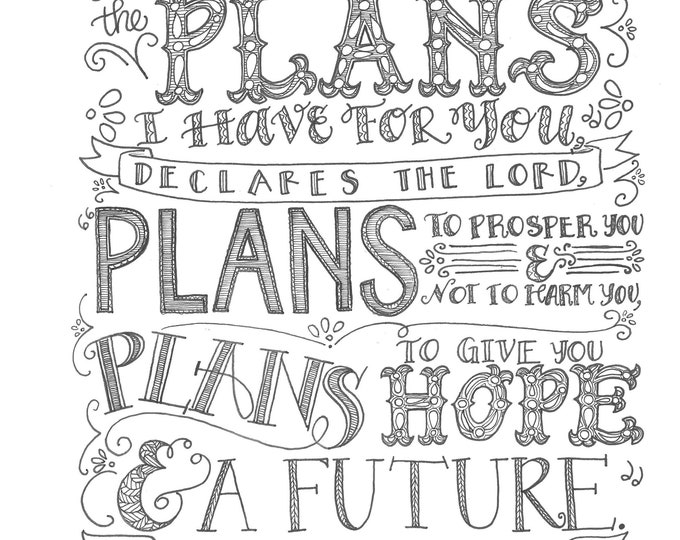 the PLANS
I HAVE FOR YOU,
DECLARES THE LORD,
PLANS
TO PROSPER YOU
&
NOT TO HARM YOU,
PLANS
TO GIVE YOU
HOPE
& A FUTURE.